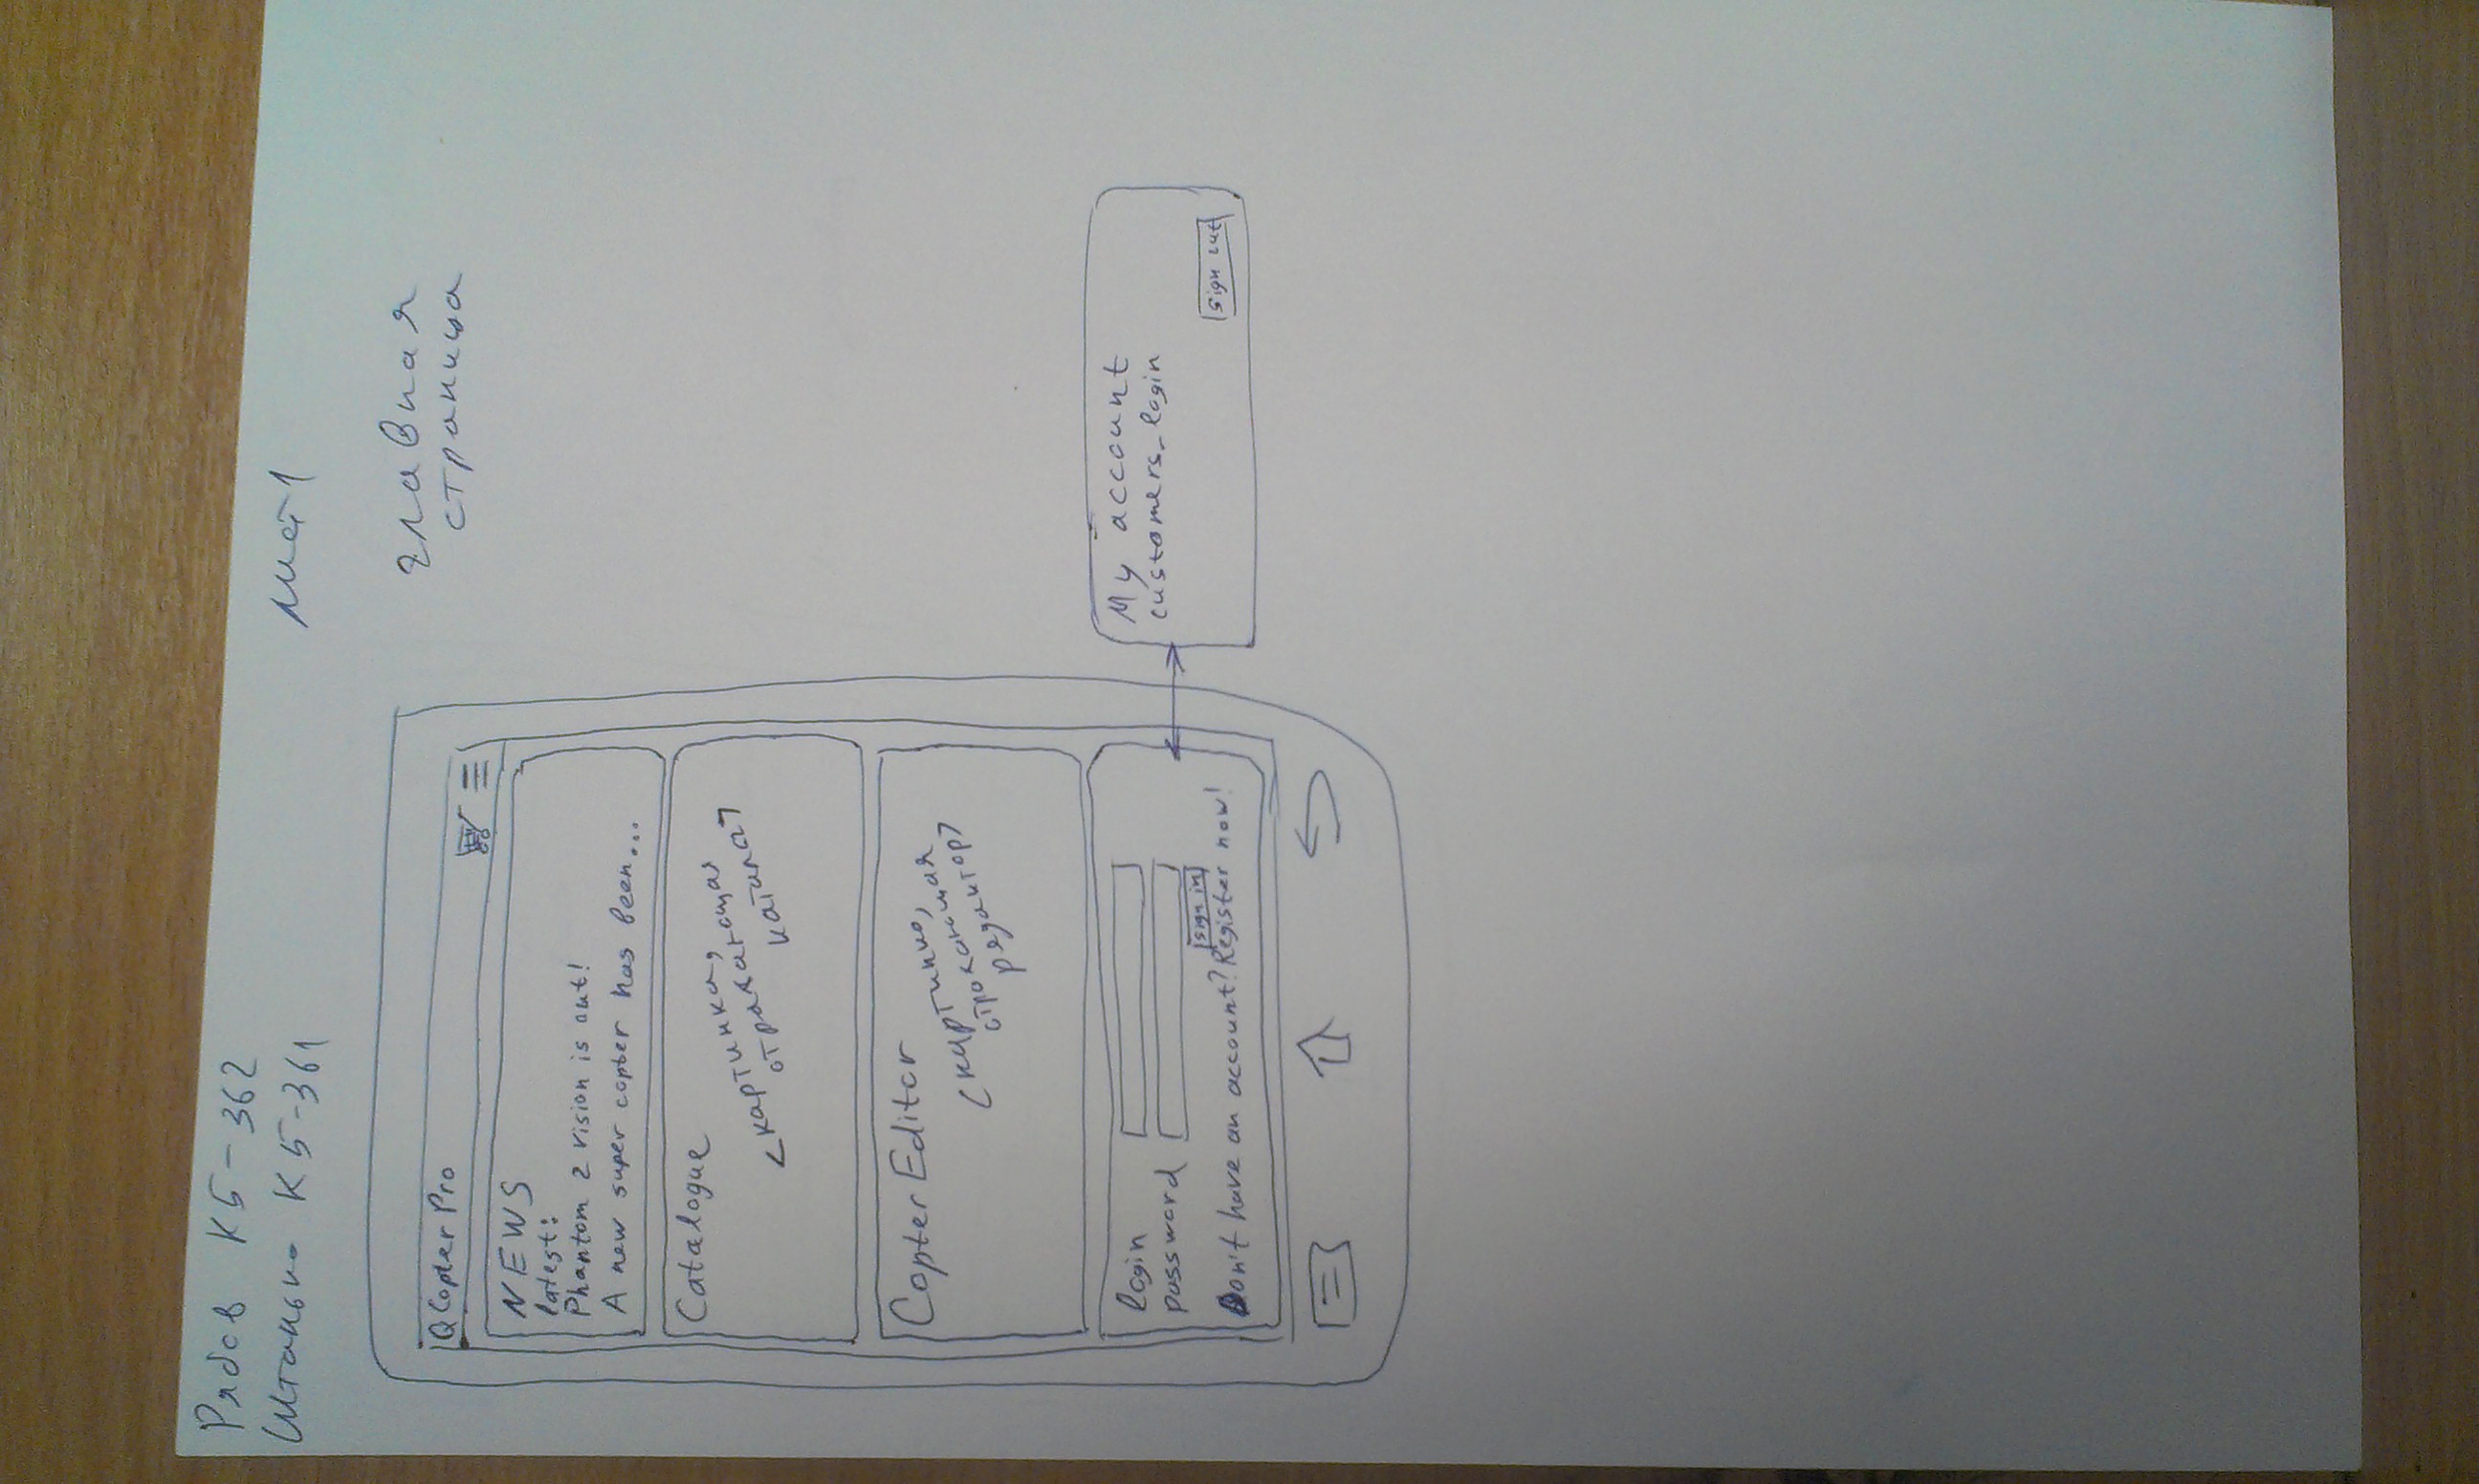 Рябов К5-362
Штанько К5-361
лист 1
главная
страница
QCopter Pro
NEWS
latest:
Phantom 2 vision is out!
A new super copter has been...
Catalogue
<картинка,
отражающая
каталог>
Copter Editor
<картинка,
отражающая
редактор>
login
password
sign in
Don't have an account? Register now!
My account
customers_login
sign out